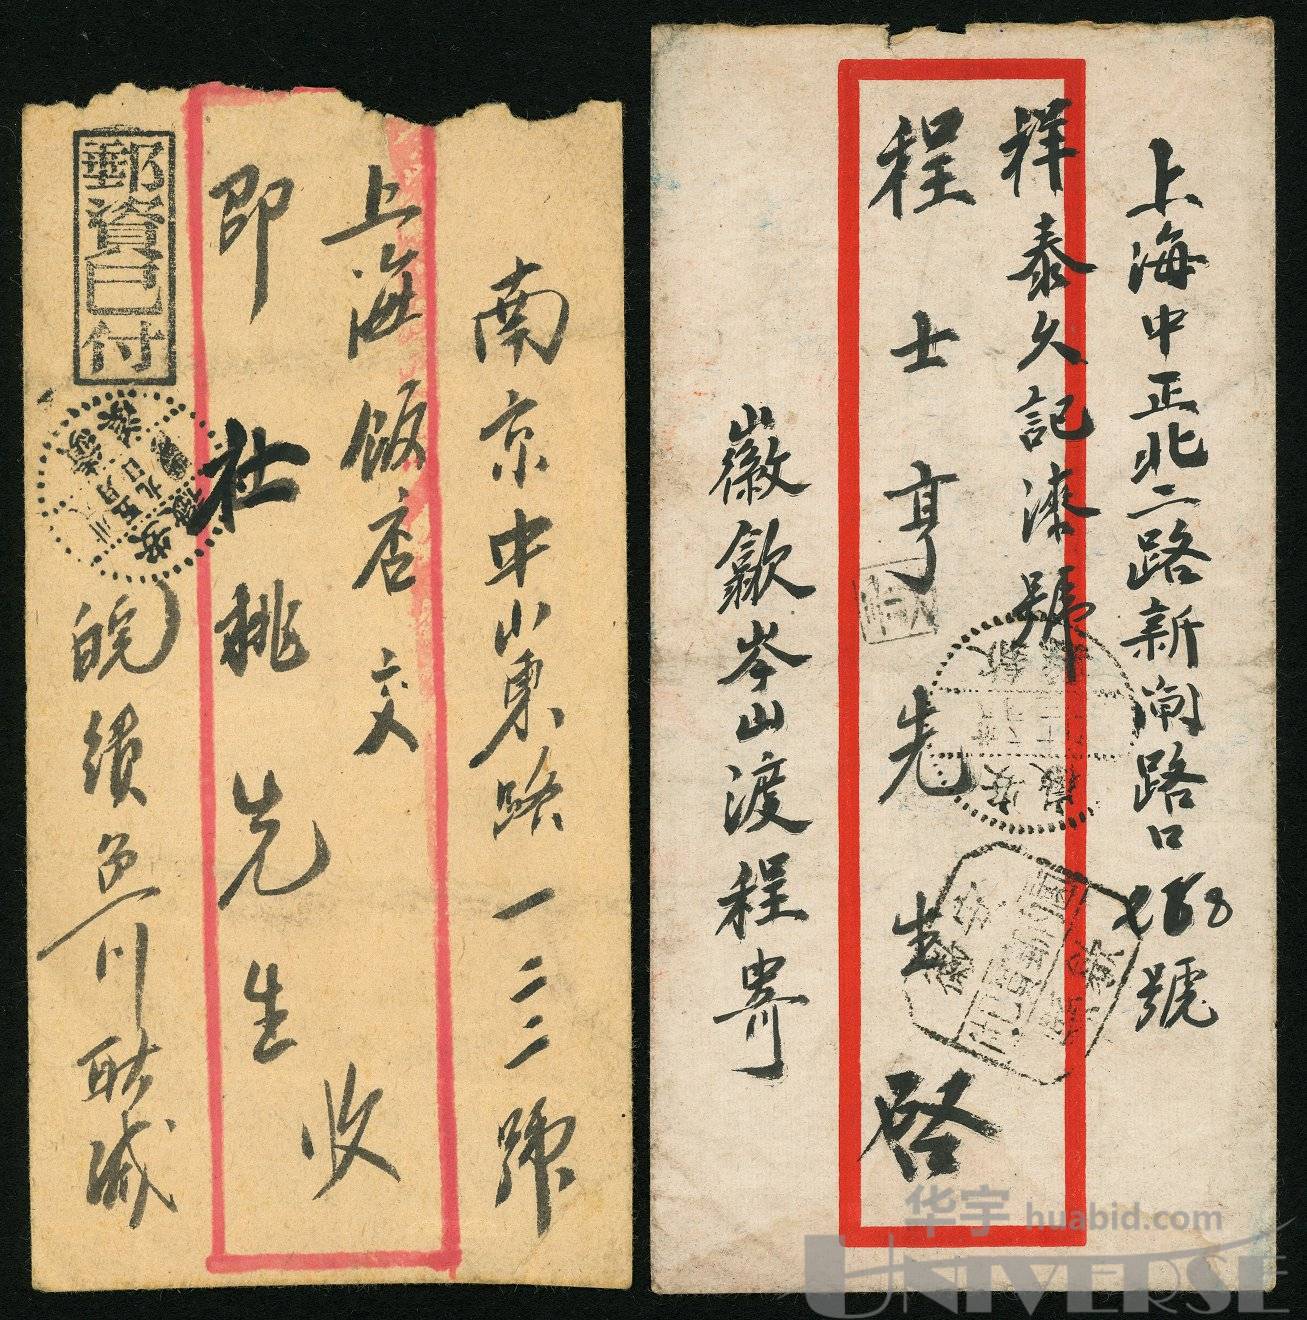 南京中山東路一二二號
上海飯店交
即杜桃先生收
郵資已付
皖績邑川耿緘
上海中正北二路新閘路口768號
祥泰久記漆號
程士亨先生啓
徽歙岑山渡程寄
华宇 huabid.com
UNIVERSE